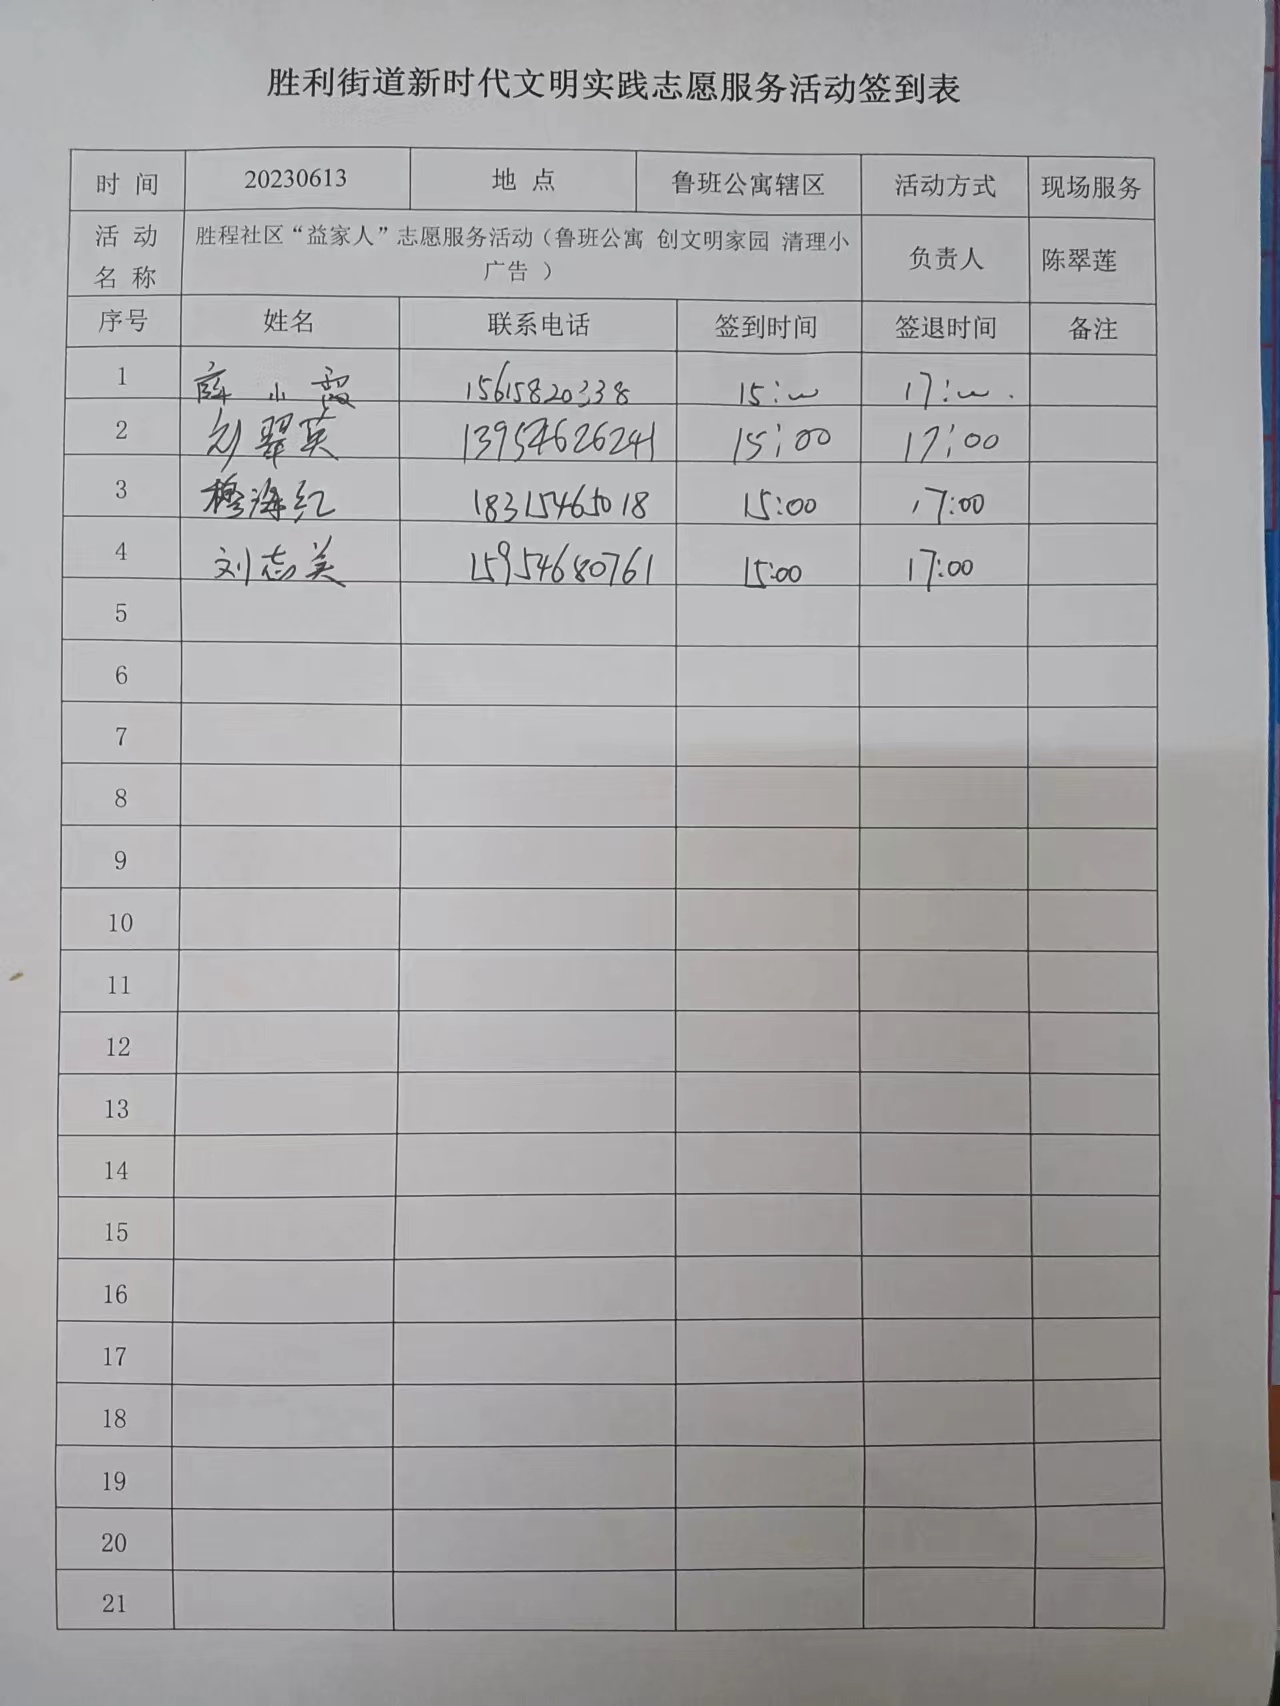 胜利街道新时代文明实践志愿服务活动签到表
时 间 20230613 地 点 鲁班公寓辖区 活动方式 现场服务
活 动 名 称 胜程社区“益家人”志愿服务活动（鲁班公寓 创文明家园 清理小广告 ） 负责人 陈翠莲
序号 姓名 联系电话 签到时间 签退时间 备注
1 薛小霞 15615820338 15:00 17:00.
2 刘翠英 13954626241 15:00 17:00
3 穆海红 18315465018 15:00 17:00
4 刘志美 15954680761 15:00 17:00
5
6
7
8
9
10
11
12
13
14
15
16
17
18
19
20
21